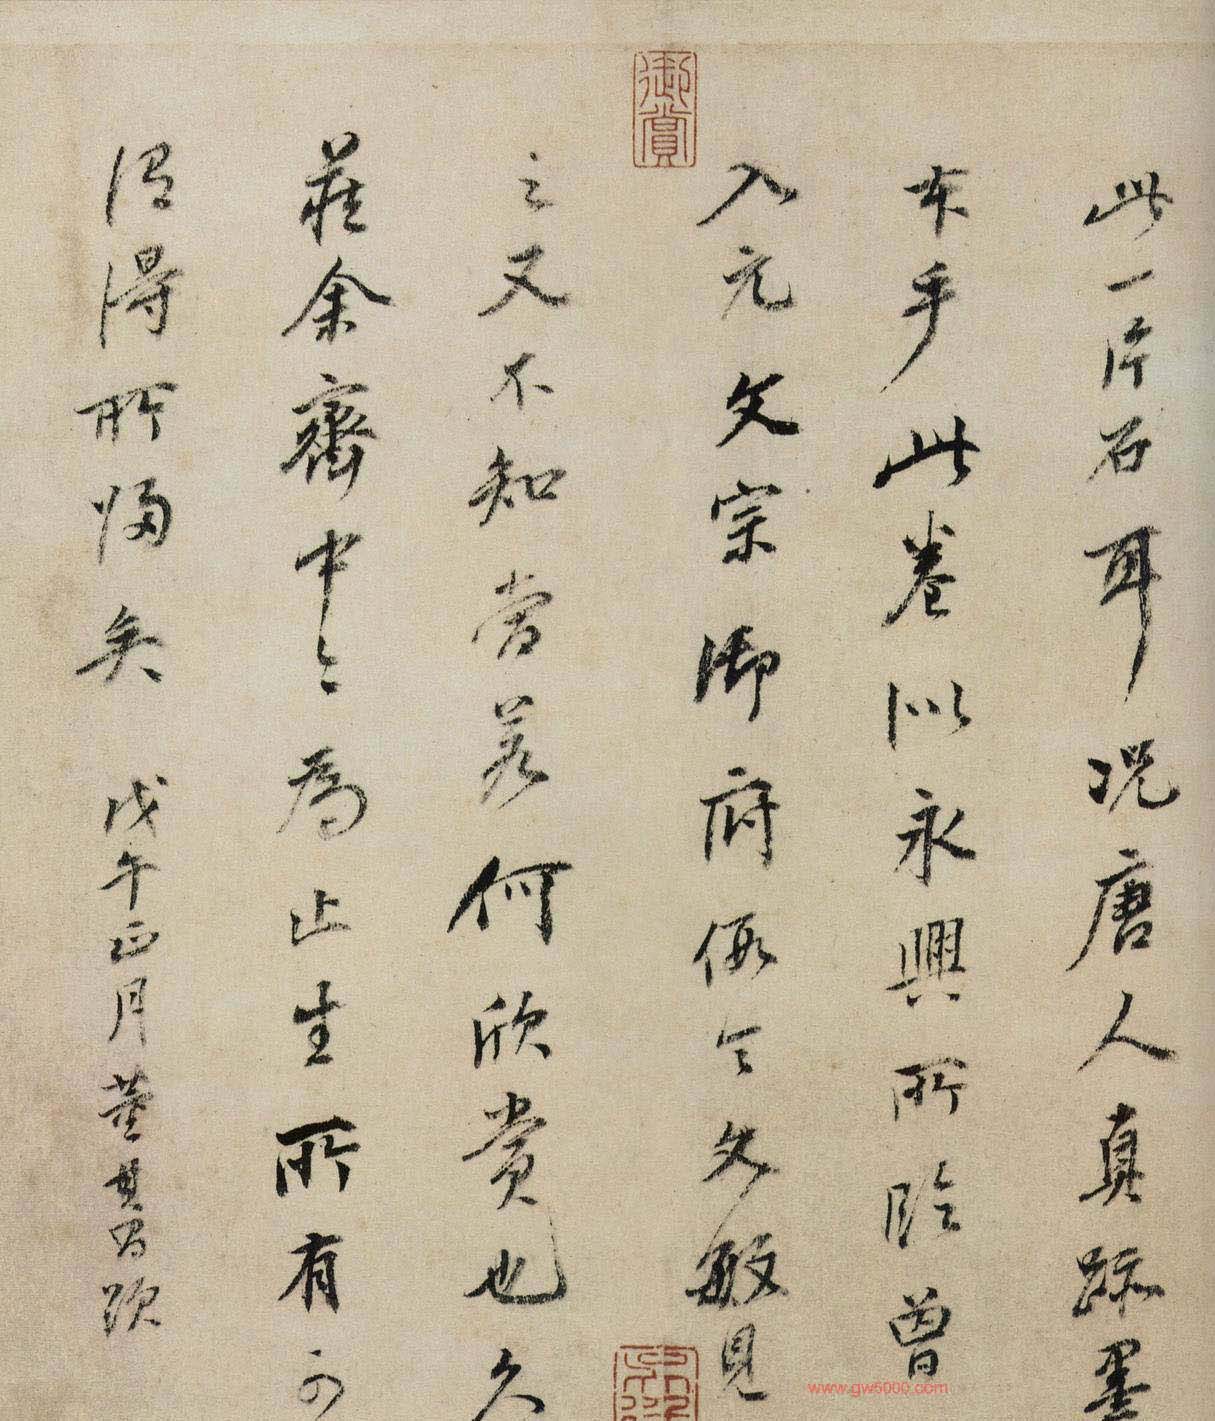 此一片石耳况唐人真跡墨
本乎此卷似永興所臨曾
入元文宗御府假令文敏見
之又不知當若何欣賞也久
藏余齋中今為止生所有可
謂得所歸矣 戊午正月董其昌跋
御賞
www.gw5000.com